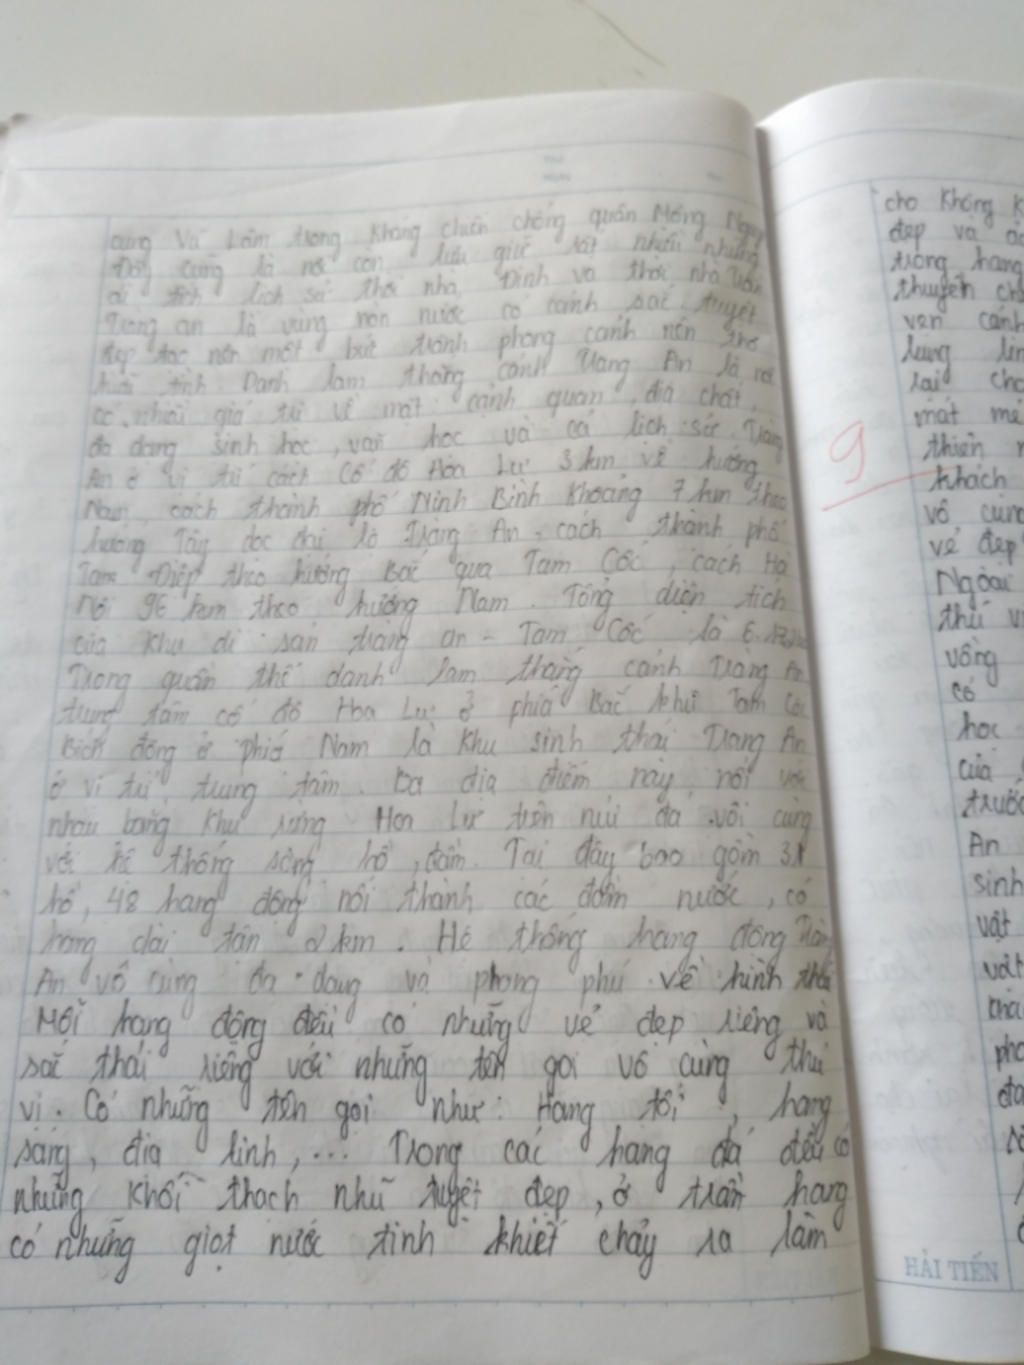 cung Vũ Lâm trong kháng chiến chống quân Mông Nguyên
Đây cũng là nơi còn lưu giữ rất nhiều những
di tích lịch sử thời nhà Đinh và thời nhà Trần
Tràng an là vùng non nước có cảnh sắc tuyệt
đẹp tạo nên một bức tranh phong cảnh nên thơ
hữu tình. Danh lam thắng cảnh Tràng An là nơi
có nhiều giá trị về mặt cảnh quan, địa chất,
đa dạng sinh học, văn học và cả lịch sử. Tràng
An ở vị trí cách Cố đô Hoa Lư 3 km về hướng
Nam, cách thành phố Ninh Bình khoảng 7 km theo
hướng Tây dọc đại lộ Tràng An, cách thành phố
Tam Điệp theo hướng Bắc qua Tam Cốc, cách Hà
Nội 96 km theo hướng Nam. Tổng diện tích
của khu di sản tràng an - Tam Cốc là
Trong quần thể danh lam thắng cảnh Tràng An
trung tâm cố đô Hoa Lư ở phía Bắc khu Tam Cốc
Bích động ở phía Nam là khu sinh thái Tràng An
ở vị trí trung tâm. Ba địa điểm này nối với
nhau bằng khu rừng Hoa Lư trên núi đá vôi cùng
với hệ thống sông hồ, đầm. Tại đây bao gồm 31
hồ, 48 hang động nối thành các đầm nước, có
hang dài tận 2 km. Hệ thống hang động Tràng
An vô cùng đa dạng và phong phú về hình thái
Mỗi hang động đều có những vẻ đẹp riêng và
sắc thái riêng với những tên gọi vô cùng thú
vị. Có những tên gọi như: Hang tối, hang
sáng, địa linh,... Trong các hang đá đều có
những khối thạch nhũ tuyệt đẹp, ở trần hang
có những giọt nước tinh khiết chảy ra làm
9
cho Không
đẹp và
trong hang
thuyền
ven cảnh
lung
lại
mát mẻ
thiên
khách
vô cùng
vẻ đẹp
Ngoài
thú
vồng
có
học
của
trước
An
sinh
vật
HẢI TIẾN